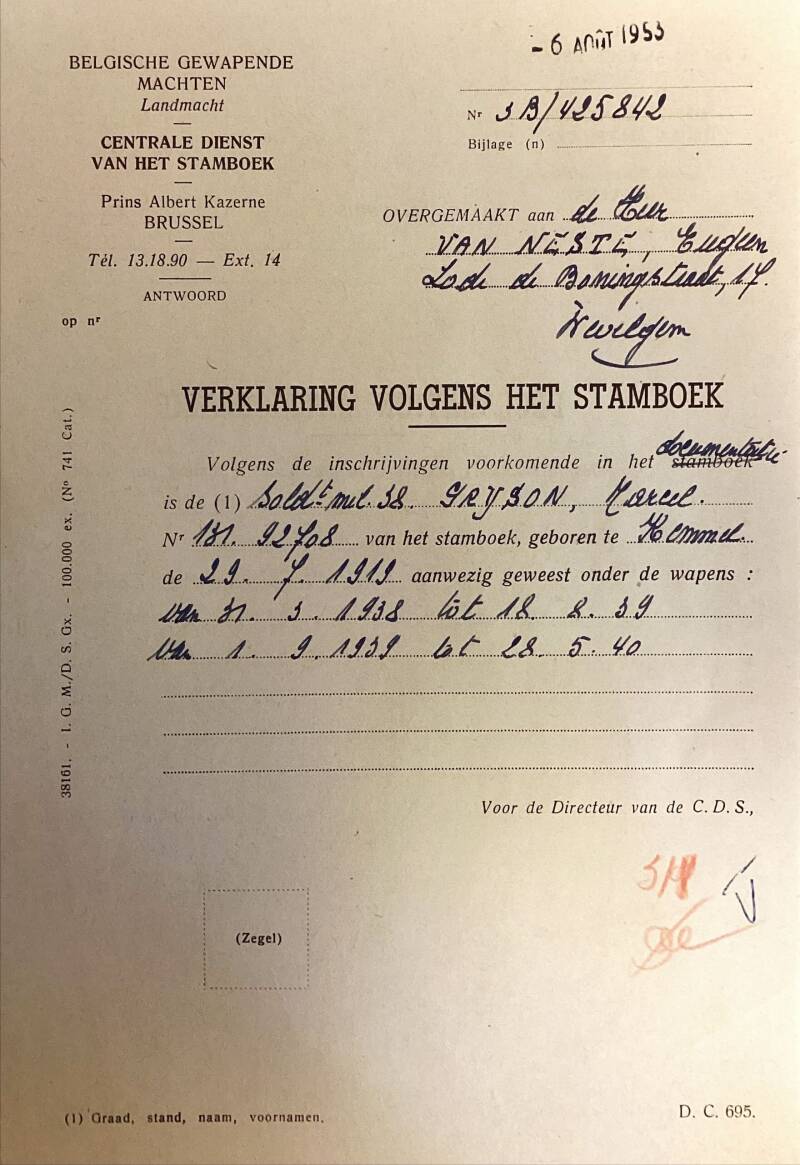 - 6 AOÛT 1953
BELGISCHE GEWAPENDE
MACHTEN
Landmacht
CENTRALE DIENST
VAN HET STAMBOEK
Prins Albert Kazerne
BRUSSEL
Tél. 13.18.90 — Ext. 14
ANTWOORD
op nr
Nr 3B/425842
Bijlage (n)
OVERGEMAAKT aan de Heer
VAN NESTE, Eugeen
Lode de Boningstraat, 17.
Wevelgem
VERKLARING VOLGENS HET STAMBOEK
Volgens de inschrijvingen voorkomende in het stamboek documentatie
is de (1) Soldt mil. 38 GRYSON, Marcel.
Nr 131. 92708 van het stamboek, geboren te Kemmel.
de 29. 7. 1919 aanwezig geweest onder de wapens :
van 31. 3. 1938 tot 18. 8. 39
van 1. 9. 1939 tot 28. 5. 40
Voor de Directeur van de C. D. S.,
(Zegel)
38161. - I. G. M./D. S. Gx. - 100.000 ex. (No 741 Cat.)
(1) Graad, stand, naam, voornamen.
D. C. 695.